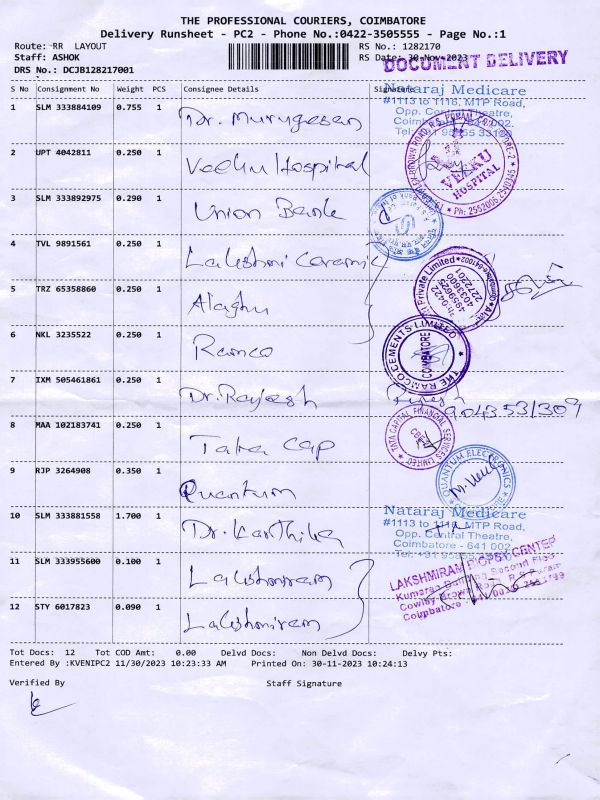 THE PROFESSIONAL COURIERS, COIMBATORE
Delivery Runsheet - PC2 - Phone No.:0422-3505555 - Page No.:1
Route: RR LAYOUT
RS No.: 1282170
Staff: ASHOK
RS Date: 30-Nov-2023
DOCUMENT DELIVERY
DRS No.: DCJB128217001
S No Consignment No Weight PCS Consignee Details Signature
Nataraj Medicare
#1113 to 1116, MTP Road,
Opp. Central Theatre,
Coimbatore - 641 002.
1 SLM 333884109 0.755 1 Dr. Murugesan
2 UPT 4042811 0.250 1 Veeku Hospital
VEEKU HOSPITAL
3 SLM 333892975 0.290 1 Union Bank
4 TVL 9891561 0.250 1 Lakshmi Ceramic
Private Limited
5 TRZ 65358860 0.250 1 Alaghu
6 NKL 3235522 0.250 1 Ramco
THE RAMCO CEMENTS LIMITED
COIMBATORE
7 IXM 505461861 0.250 1 Dr. Rajesh
8 MAA 102183741 0.250 1 Tata Cap
TATA CAPITAL FINANCIAL SERVICES LIMITED
9 RJP 3264908 0.350 1 Quantum
QUANTUM ELECTRONICS
10 SLM 333881558 1.700 1 Dr. Karthika
Nataraj Medicare
#1113 to 1116, MTP Road,
Opp. Central Theatre,
Coimbatore - 641 002
11 SLM 333955600 0.100 1 Lakshmiram
LAKSHMIRAM BIOPSY CENTER
12 STY 6017823 0.090 1 Lakshmiram
Tot Docs: 12 Tot COD Amt: 0.00 Delvd Docs: Non Delvd Docs: Delvy Pts:
Entered By :KVENIPC2 11/30/2023 10:23:33 AM Printed On: 30-11-2023 10:24:13
Verified By Staff Signature